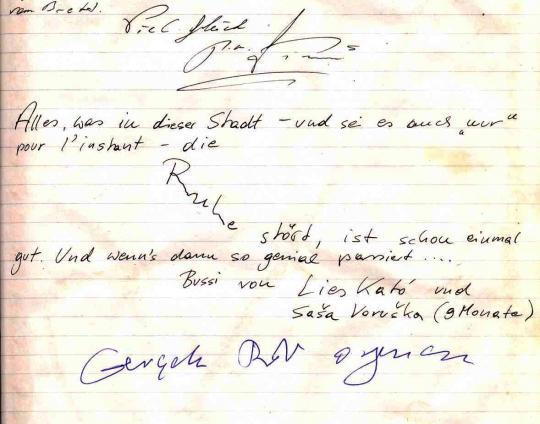 vom
Viel Glück
Alles, was in dieser Stadt - und sei es auch „nur“
pour l'instant - die
Ruhe
stört, ist schon einmal
gut. Und wenn's dann so genial passiert ....
Bussi von Lies Kató und
Saša Voruška (9 Monate)